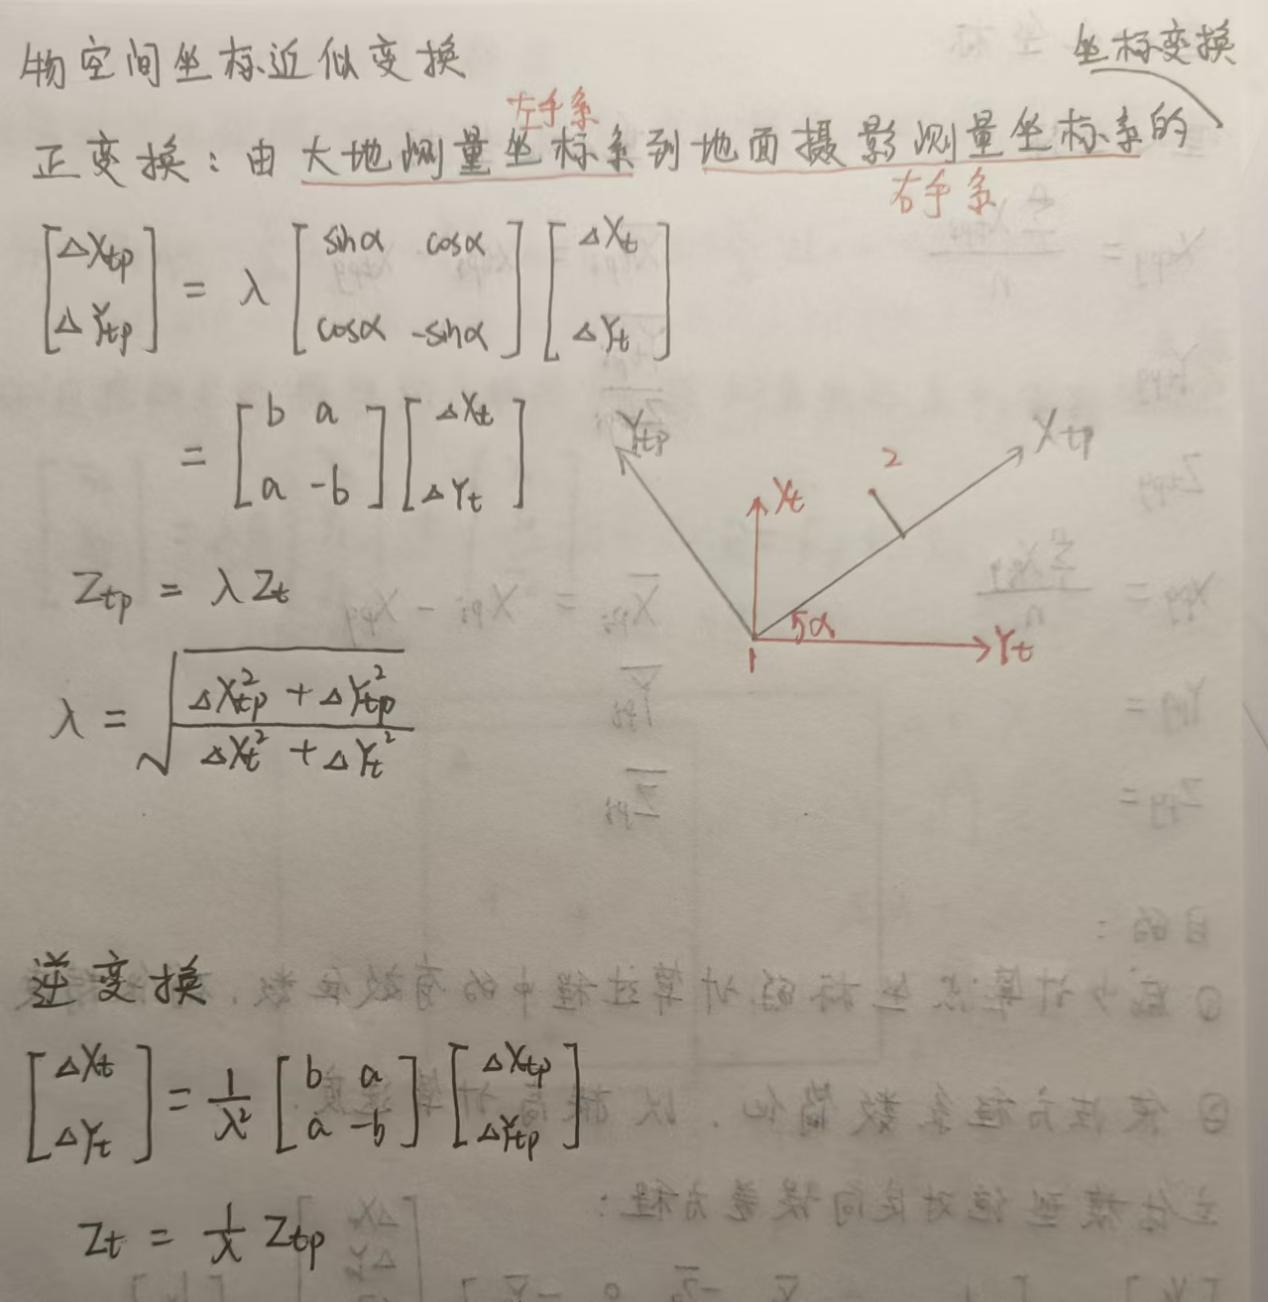 物空间坐标近似变换
坐标变换
左手系
正变换：由大地测量坐标系到地面摄影测量坐标系的
右手系
[ΔXtp ΔYtp] = λ [sinα cosα cosα -sinα] [ΔXt ΔYt]
= [b a a -b] [ΔXt ΔYt]
Ytp
Xtp
2
Xt
α
1
Yt
Ztp = λZt
λ = √((ΔXtp² + ΔYtp²)/(ΔXt² + ΔYt²))
逆变换
[ΔXt ΔYt] = 1/λ² [b a a -b] [ΔXtp ΔYtp]
Zt = 1/λ Ztp